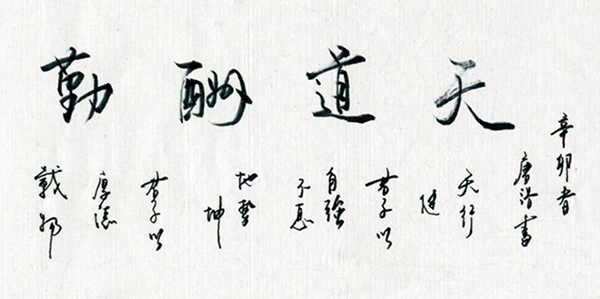 天道酬勤
天行
健
君子以
自強
不息
地勢
坤
君子以
厚德
載物
辛卯春
書